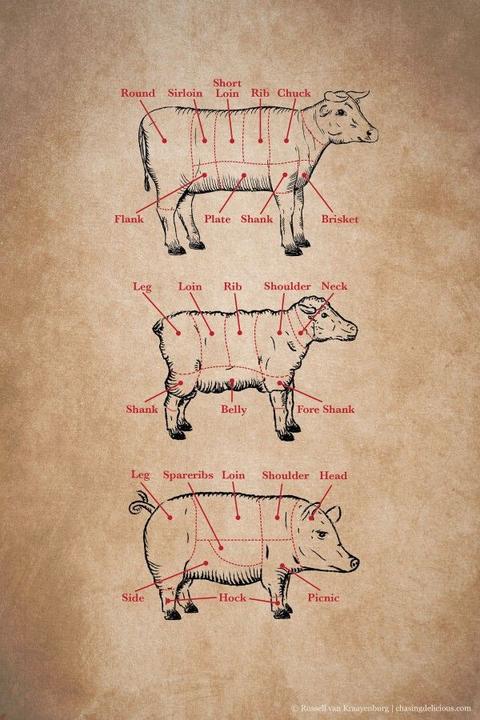 Short
Round Sirloin Loin Rib Chuck
Flank Plate Shank Brisket
Leg Loin Rib Shoulder Neck
Shank Belly Fore Shank
Leg Spareribs Loin Shoulder Head
Side Hock Picnic
© Russell van Kraayenburg | chasingdelicious.com